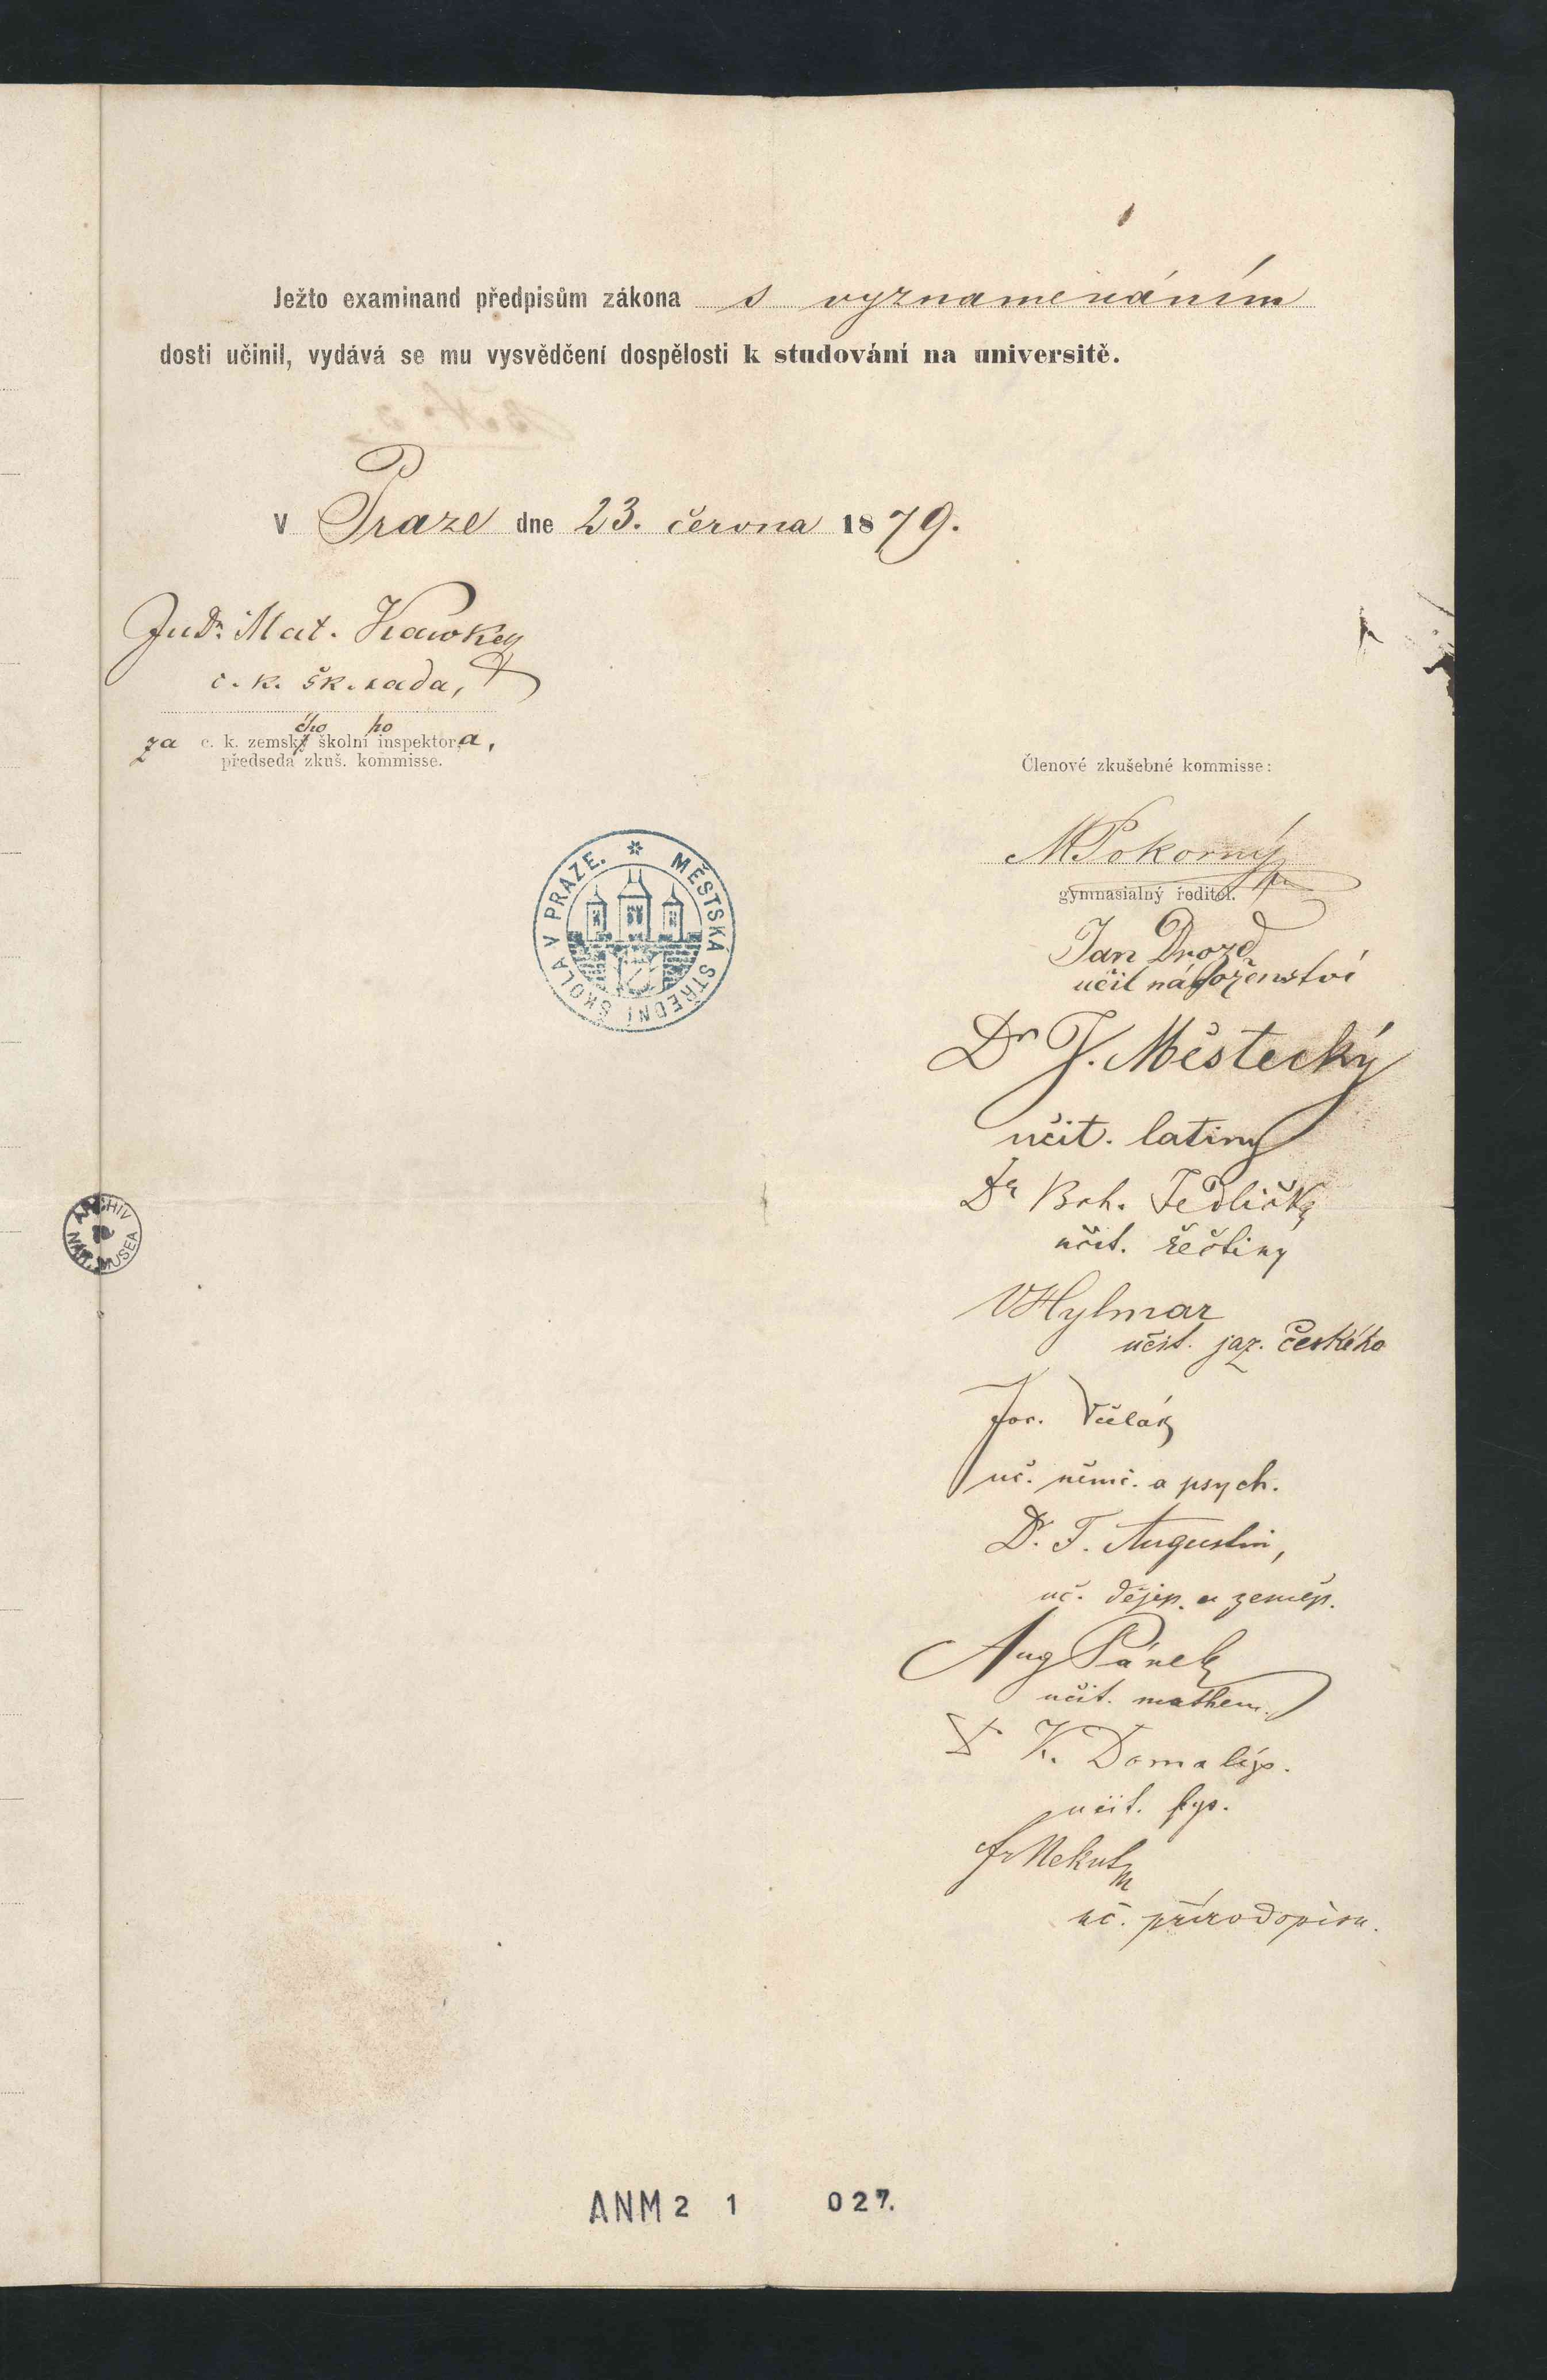 Ježto examinand předpisům zákona s vyznamenáním
dosti učinil, vydává se mu vysvědčení dospělosti k studování na universitě.
V Praze dne 23. června 1879.
JuDr. Mat. Kawka
c. k. šk. rada,
ého ho
za c. k. zemský školní inspektora,
předseda zkuš. kommisse.
Členové zkušebné kommisse:
MPokorný
gymnasialný ředitel.
Jan Drozd
učit náboženství
MĚSTSKÁ STŘEDNÍ ŠKOLA V PRAZE.
Dr J. Městecký
učit. latiny
Dr Boh. Jedlička
učit. řečtiny
ARCHIV NÁR. MUSEA
VHylmar
učit. jaz. českého
Jos. Včelák
uč. němč. a psych.
Dr. F. Augustin,
uč. dějep. a zeměp.
Aug Pánek
učit. mathem.
Dr K. Domalíp.
učit. fys.
Fr Nekut
uč. přírodopisu.
ANM 2 1 027.